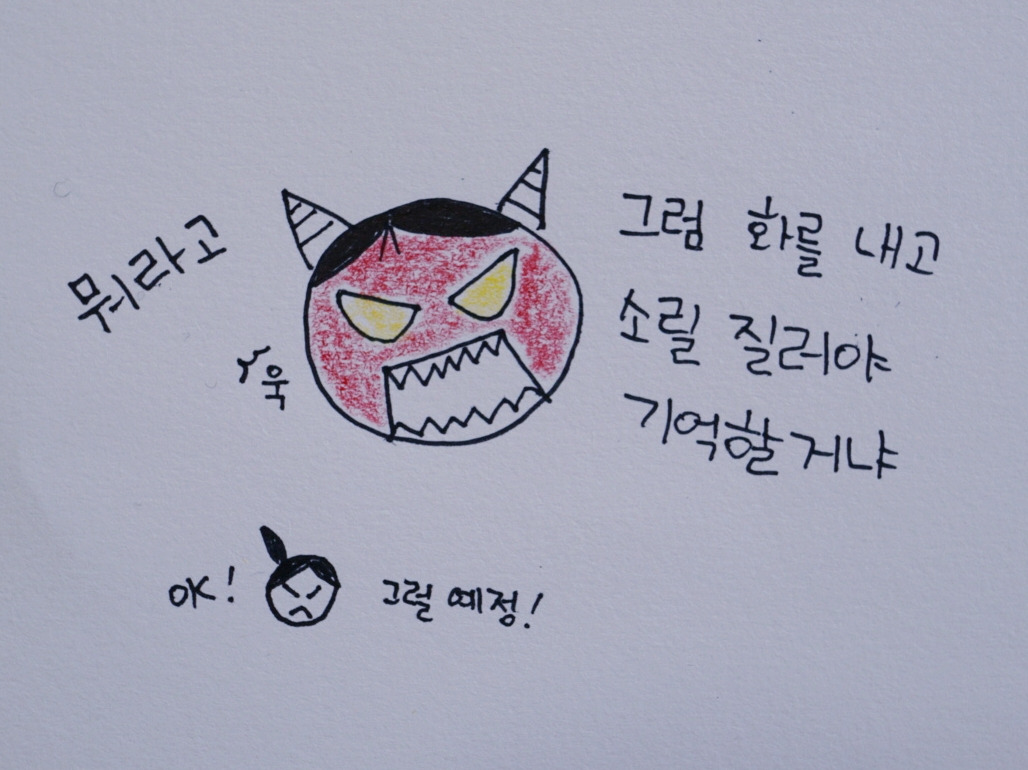 뭐라고
욱
그럼 화를 내고
소릴 질러야
기억할거냐
OK!
그럴 예정!